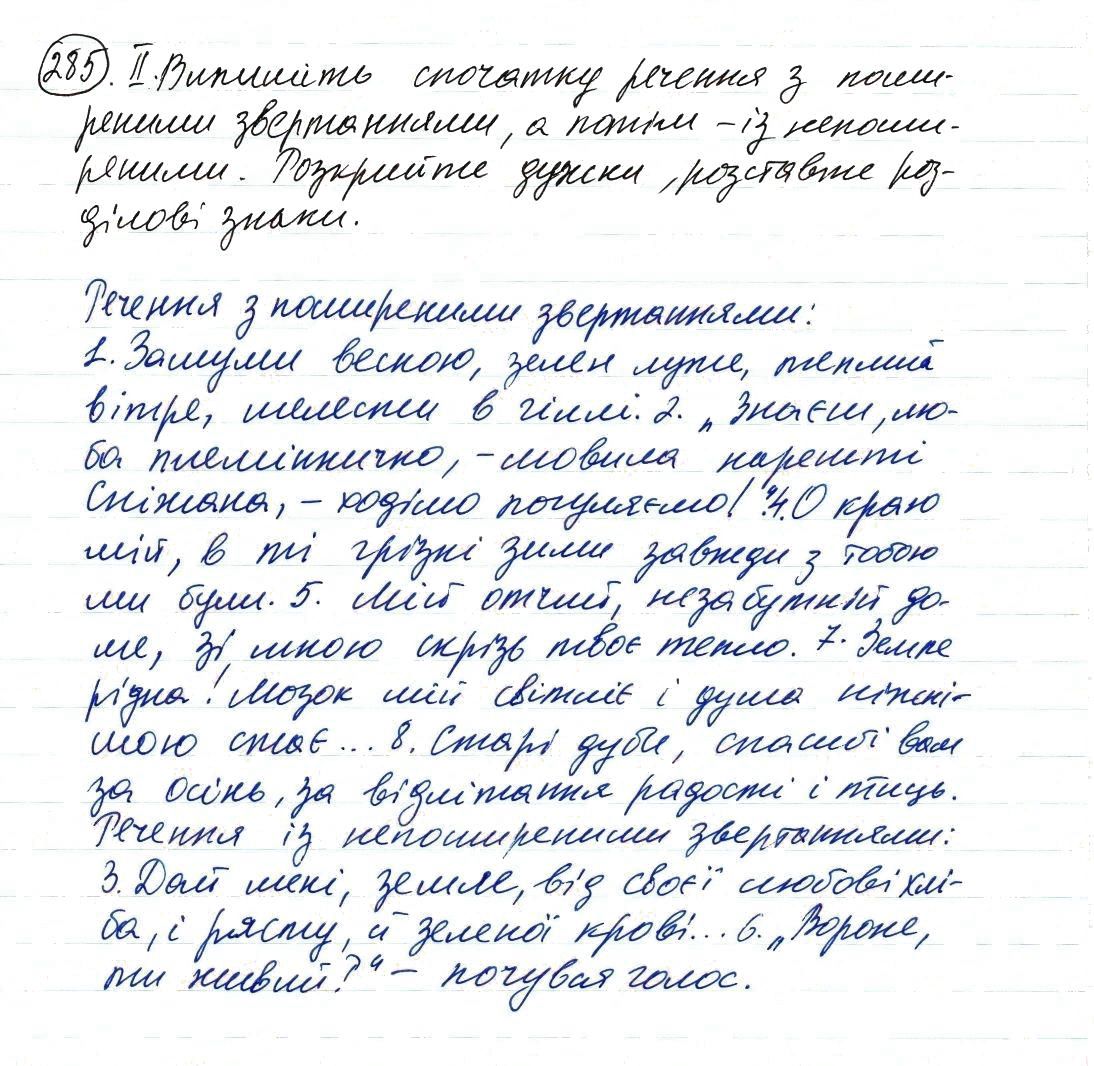 285. II. Випишіть спочатку речення з поши-
реними звертаннями, а потім – із непоши-
реними. Розкрийте дужки, розставте роз-
ділові знаки.
Речення з поширеними звертаннями:
1. Зашуми весною, зелен луже, теплий
вітре, шелести в гіллі. 2. „Знаєш, лю-
ба племінничко, – мовила нарешті
Сніжана, – ходімо погуляємо!". 4. О краю
мій, в ті грізні зими завжди з тобою
ми були. 5. Мій отчий, незабутній до-
ме, зі мною скрізь твоє тепло. 7. Земле
рідна! Мозок мій світліє і душа ніжні-
шою стає... 8. Старі дуби, спасибі вам
за осінь, за відлітання радості і птиць.
Речення із непоширеними звертаннями:
3. Дай мені, земле, від своєї любові хлі-
ба, і рясту, й зеленої крові... 6. „Вороне,
ти живий?" – почувся голос.